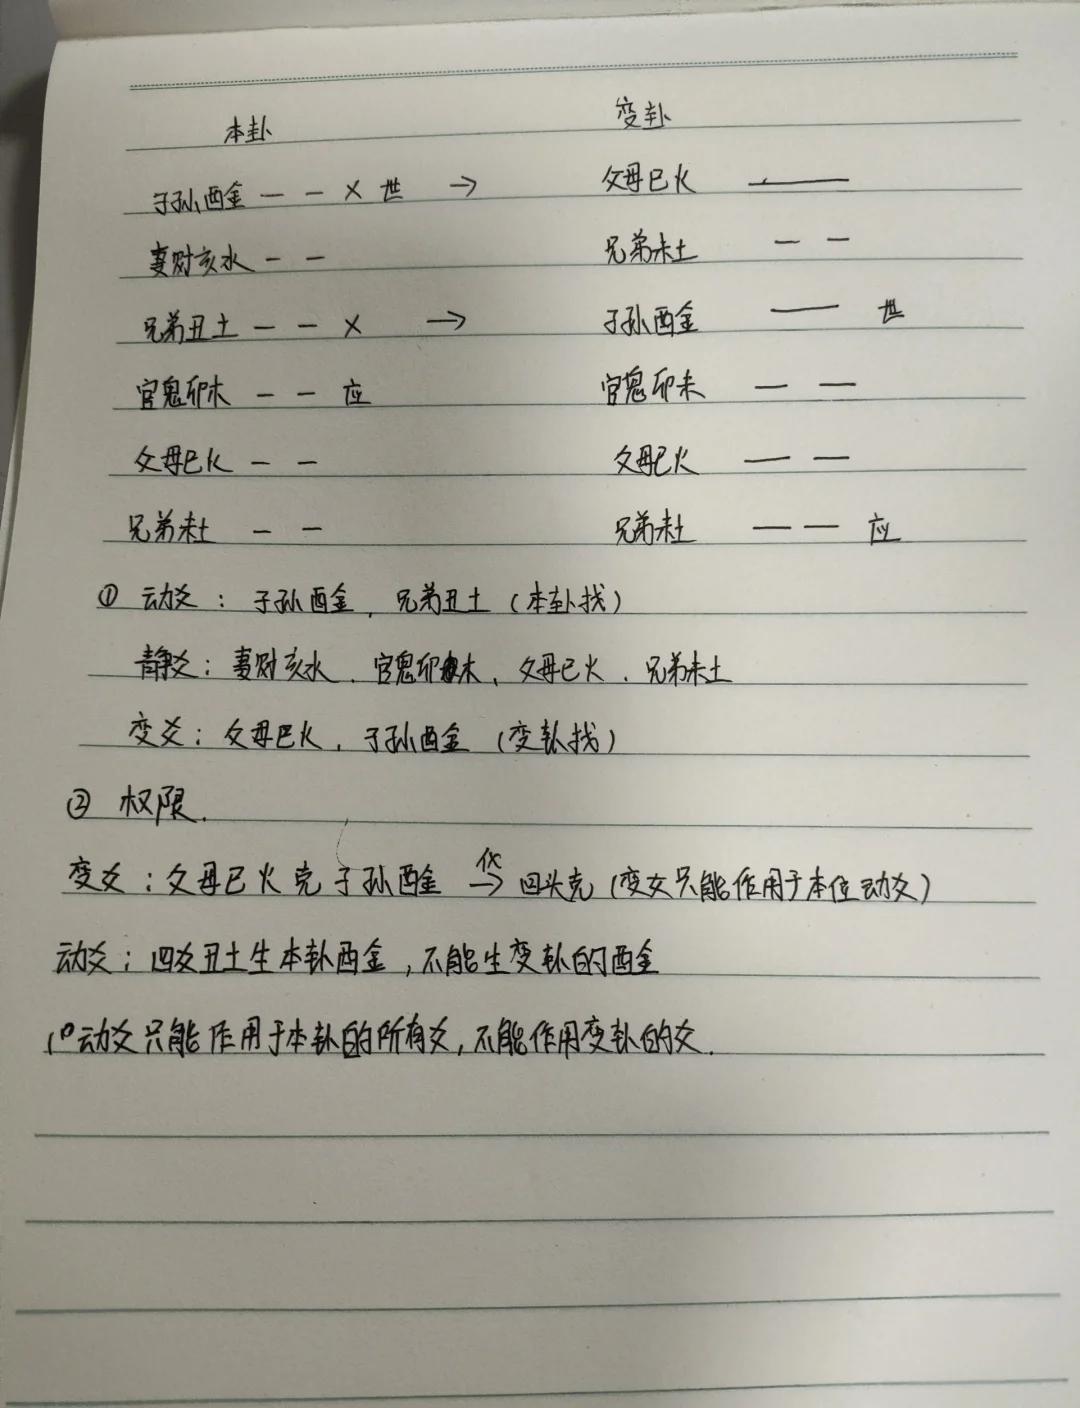 本卦 变卦
子孙酉金 — — X 世 → 父母巳火 ——
妻财亥水 — — 兄弟未土 — —
兄弟丑土 — — X → 子孙酉金 —— 世
官鬼卯木 — — 应 官鬼卯未 — —
父母巳火 — — 父母巳火 — —
兄弟未土 — — 兄弟未土 — — 应
① 动爻：子孙酉金，兄弟丑土（本卦找）
静爻：妻财亥水、官鬼卯木、父母巳火、兄弟未土
变爻：父母巳火，子孙酉金（变卦找）
② 权限.
变爻：父母巳火克子孙酉金 化→ 回头克（变爻只能作用于本位动爻）
动爻：四爻丑土生本卦酉金，不能生变卦的酉金
1°动爻只能作用于本卦的所有爻，不能作用变卦的爻.